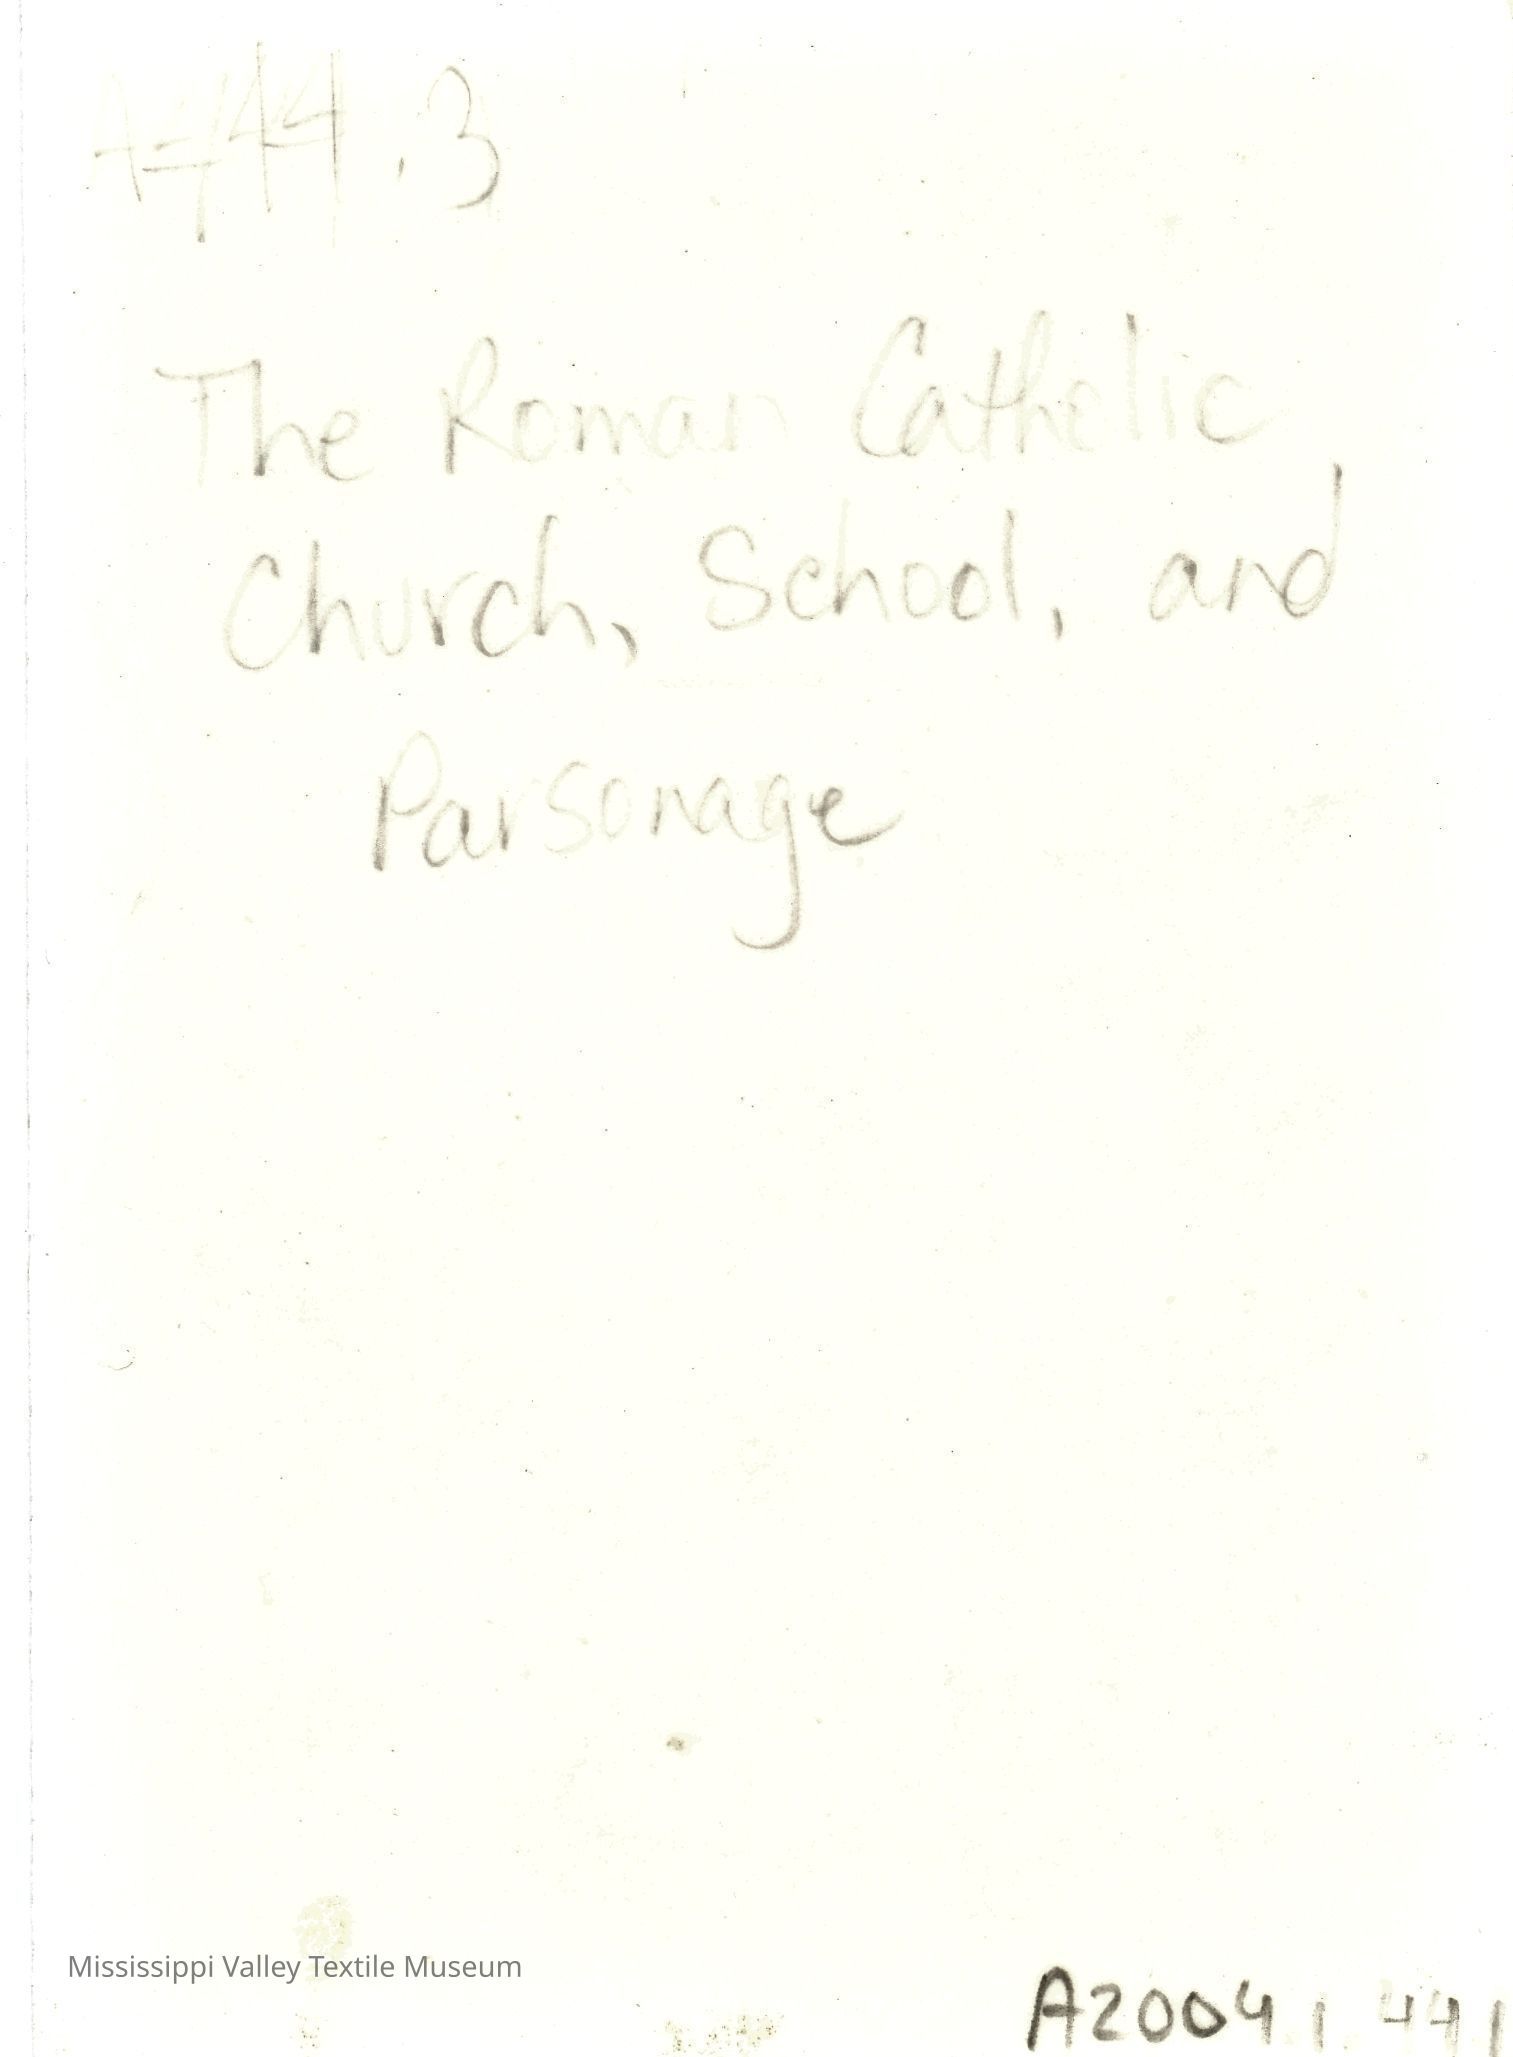 .3
The Roman Catholic
Church, School, and
Parsonage
Mississippi Valley Textile Museum
A2004.1.441